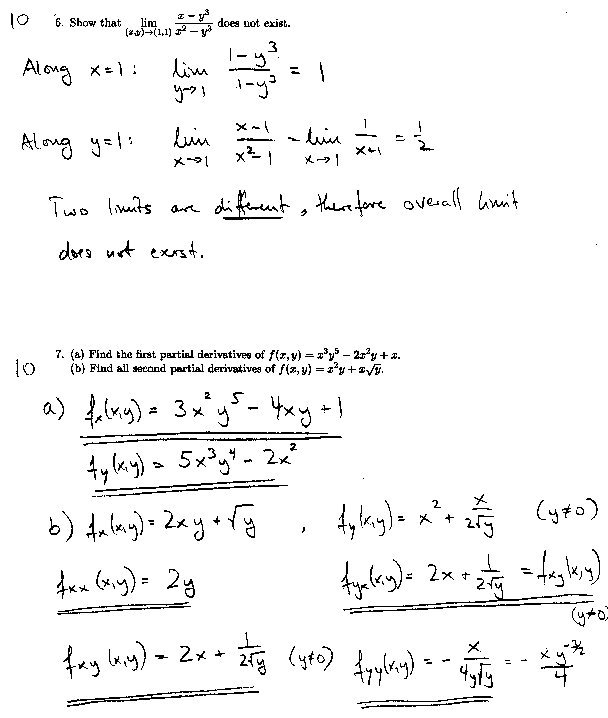 10 6. Show that lim (x,y)→(1,1) (x − y³)/(x² − y³) does not exist.
Along x=1: lim y→1 (1−y³)/(1−y³) = 1
Along y=1: lim x→1 (x−1)/(x²−1) = lim x→1 1/(x+1) = 1/2
Two limits are different, therefore overall limit
does not exist.
7. (a) Find the first partial derivatives of f(x, y) = x³y⁵ − 2x²y + x.
10 (b) Find all second partial derivatives of f(x, y) = x²y + x√y.
a) fx(x,y) = 3x²y⁵ − 4xy + 1
fy(x,y) = 5x³y⁴ − 2x²
b) fx(x,y) = 2xy + √y , fy(x,y) = x² + x/(2√y) (y≠0)
fxx(x,y) = 2y fyx(x,y) = 2x + 1/(2√y) = fxy(x,y)
(y≠0)
fxy(x,y) = 2x + 1/(2√y) (y≠0) fyy(x,y) = − x/(4y√y) = − xy^(−3/2)/4